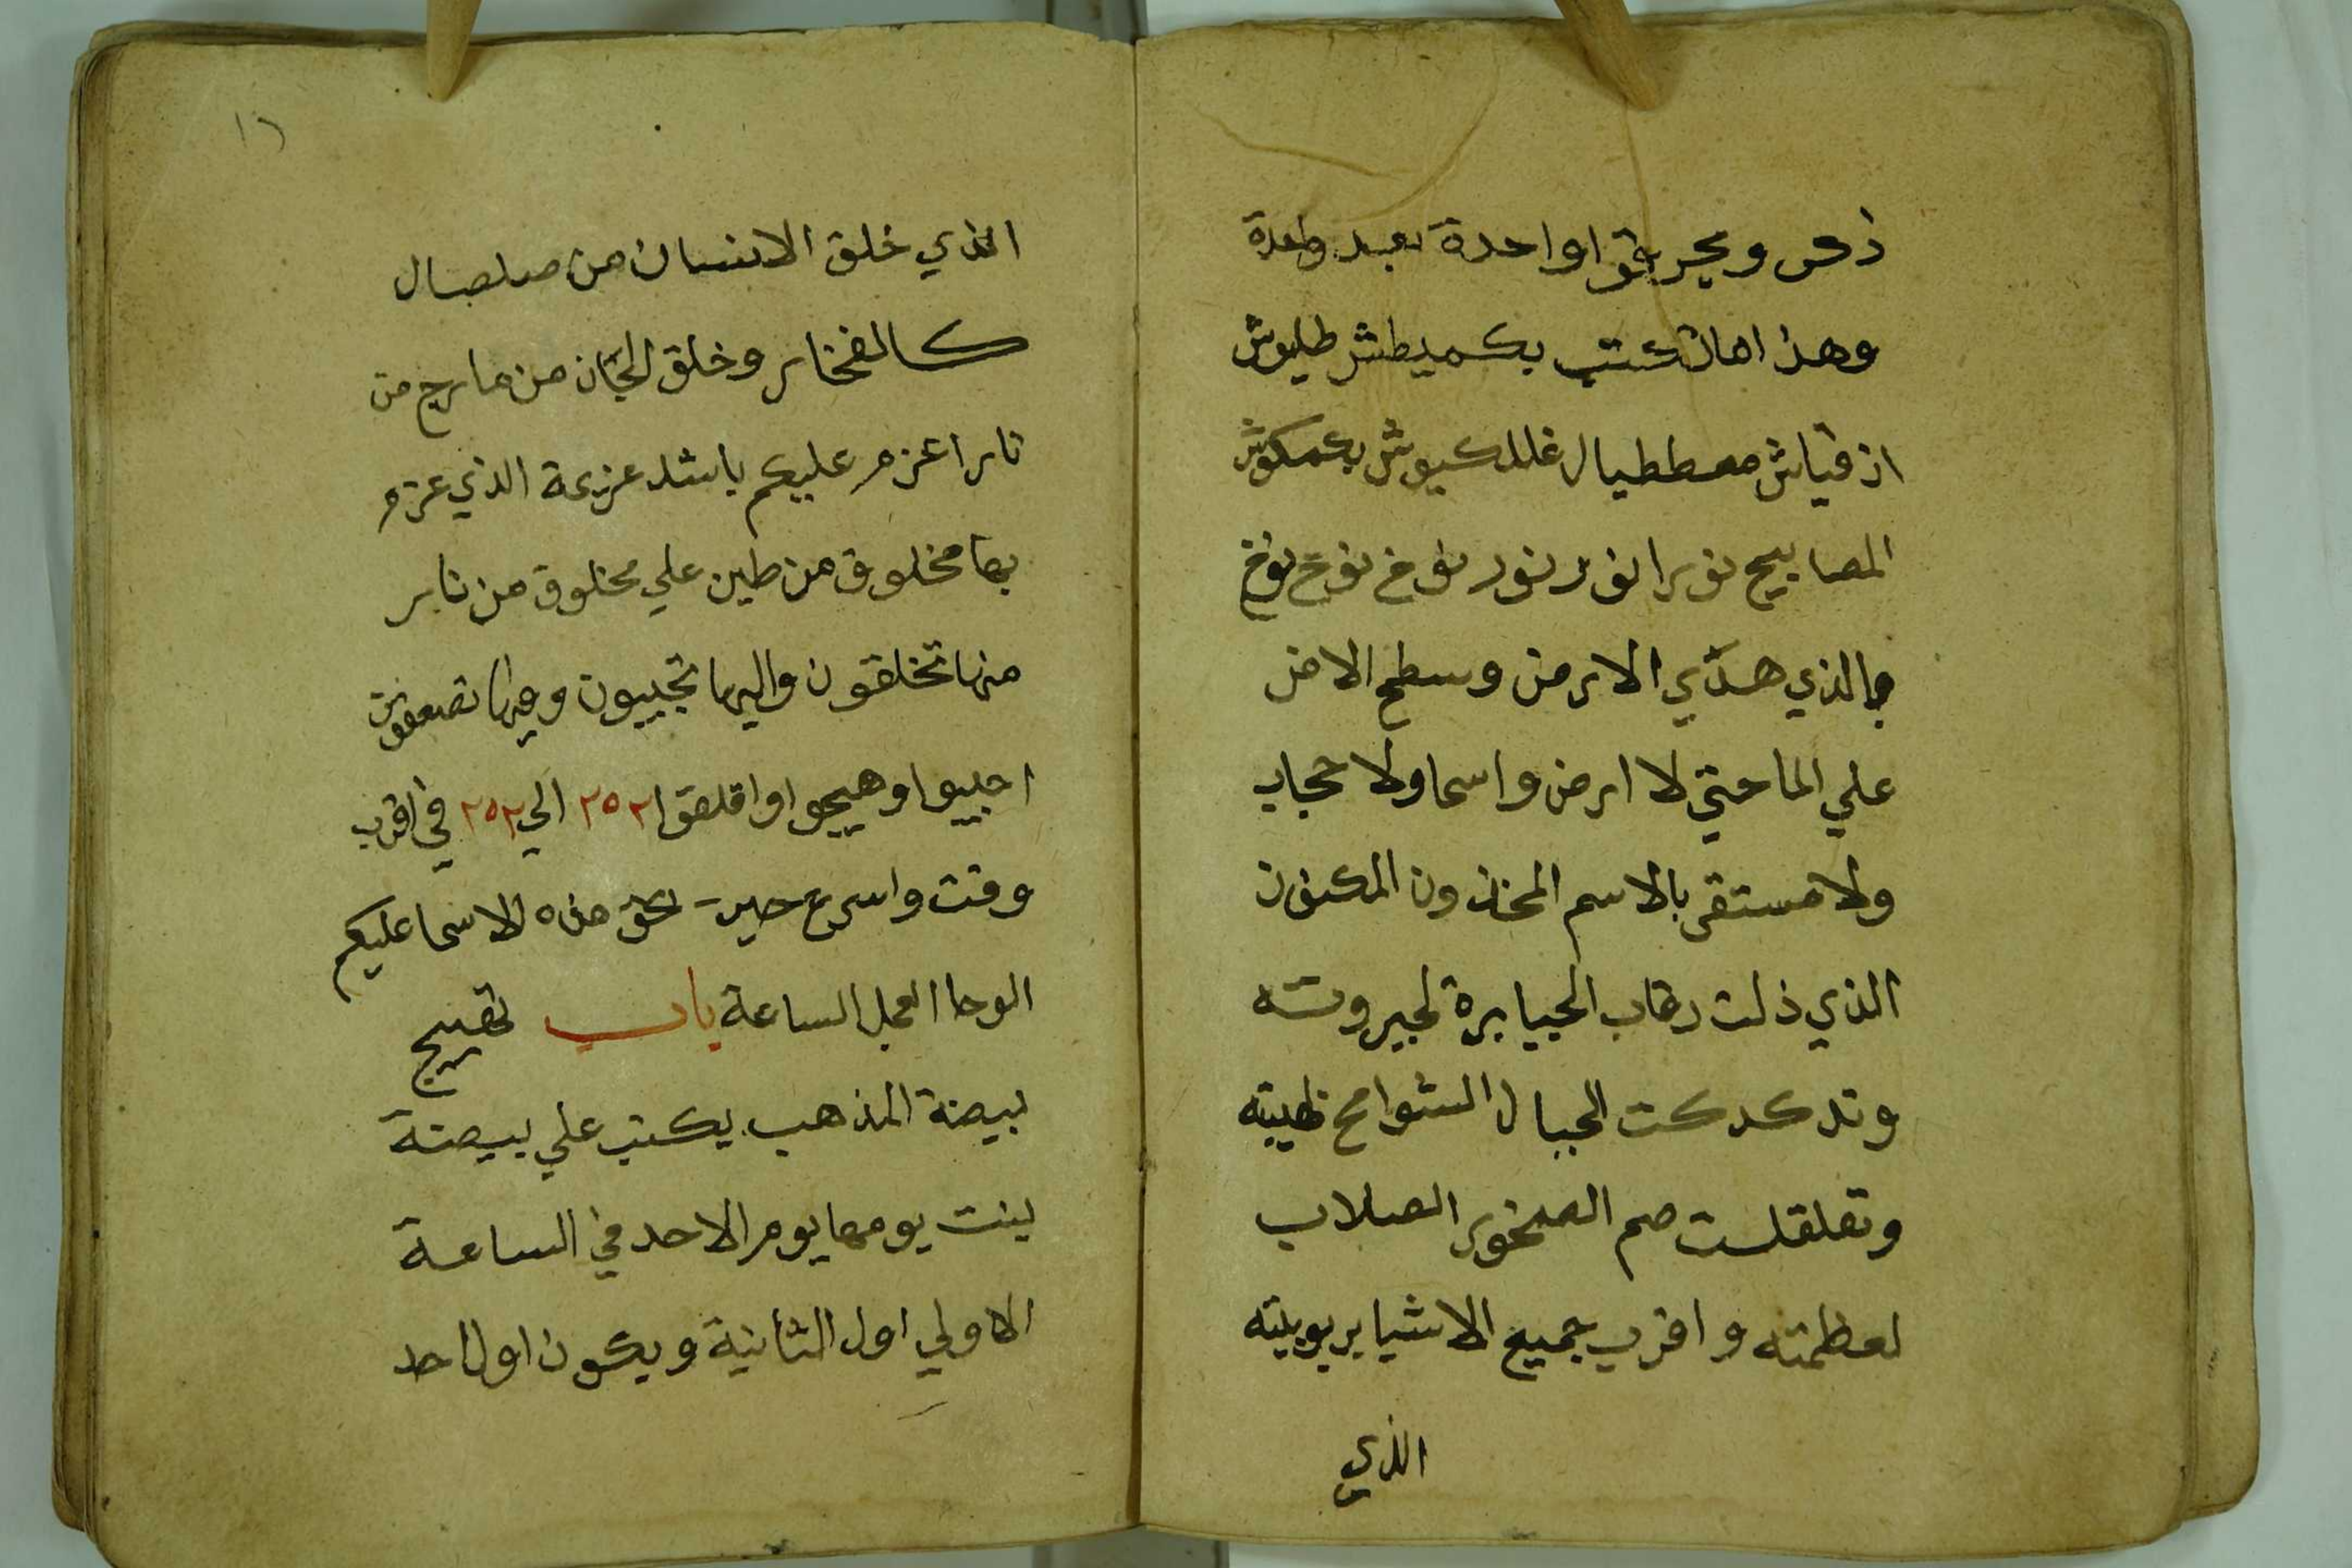 ذكر ويحرقوا واحدة بعد واحدة
وهذا ما تكتب بكميطش طليوش
از قياش مططيال غللكيوش بكمكوش
المصابيح نورا نور نور نوخ نوخ نوخ
بالذي هدي الارض وسطح الارض
علي الما حتي لا ارض واسما ولا حجاب
ولا مستقر بالاسم المخذون المكنون
الذي ذلت رقاب الجبابرة لجبروته
وتدكدكت الجبال الشوامخ لهيبته
وتقلقلت صم الصخور الصلاب
لعظمته واقرب جميع الاشيا بربوبيته
الذي
١٦
الذي خلق الانسان من صلصال
كالفخار وخلق الجان من مارج من
نار اعزم عليكم باشد عزيمة الذي عزم
بها مخلوق من طين علي مخلوق من نار
منها تخلقون واليها تجيبون وفيها تصعقون
اجيبوا وهيجوا واقلقوا ٢٥٢ الي ٢٥٢ في اقرب
وقت واسرع حين بحق هذه الاسما عليكم
الوحا العجل الساعة باب تهييج
بيضة المذهب يكتب علي بيضة
بنت يومها يوم الاحد في الساعة
الاولي اول الثانية ويكون اول احد